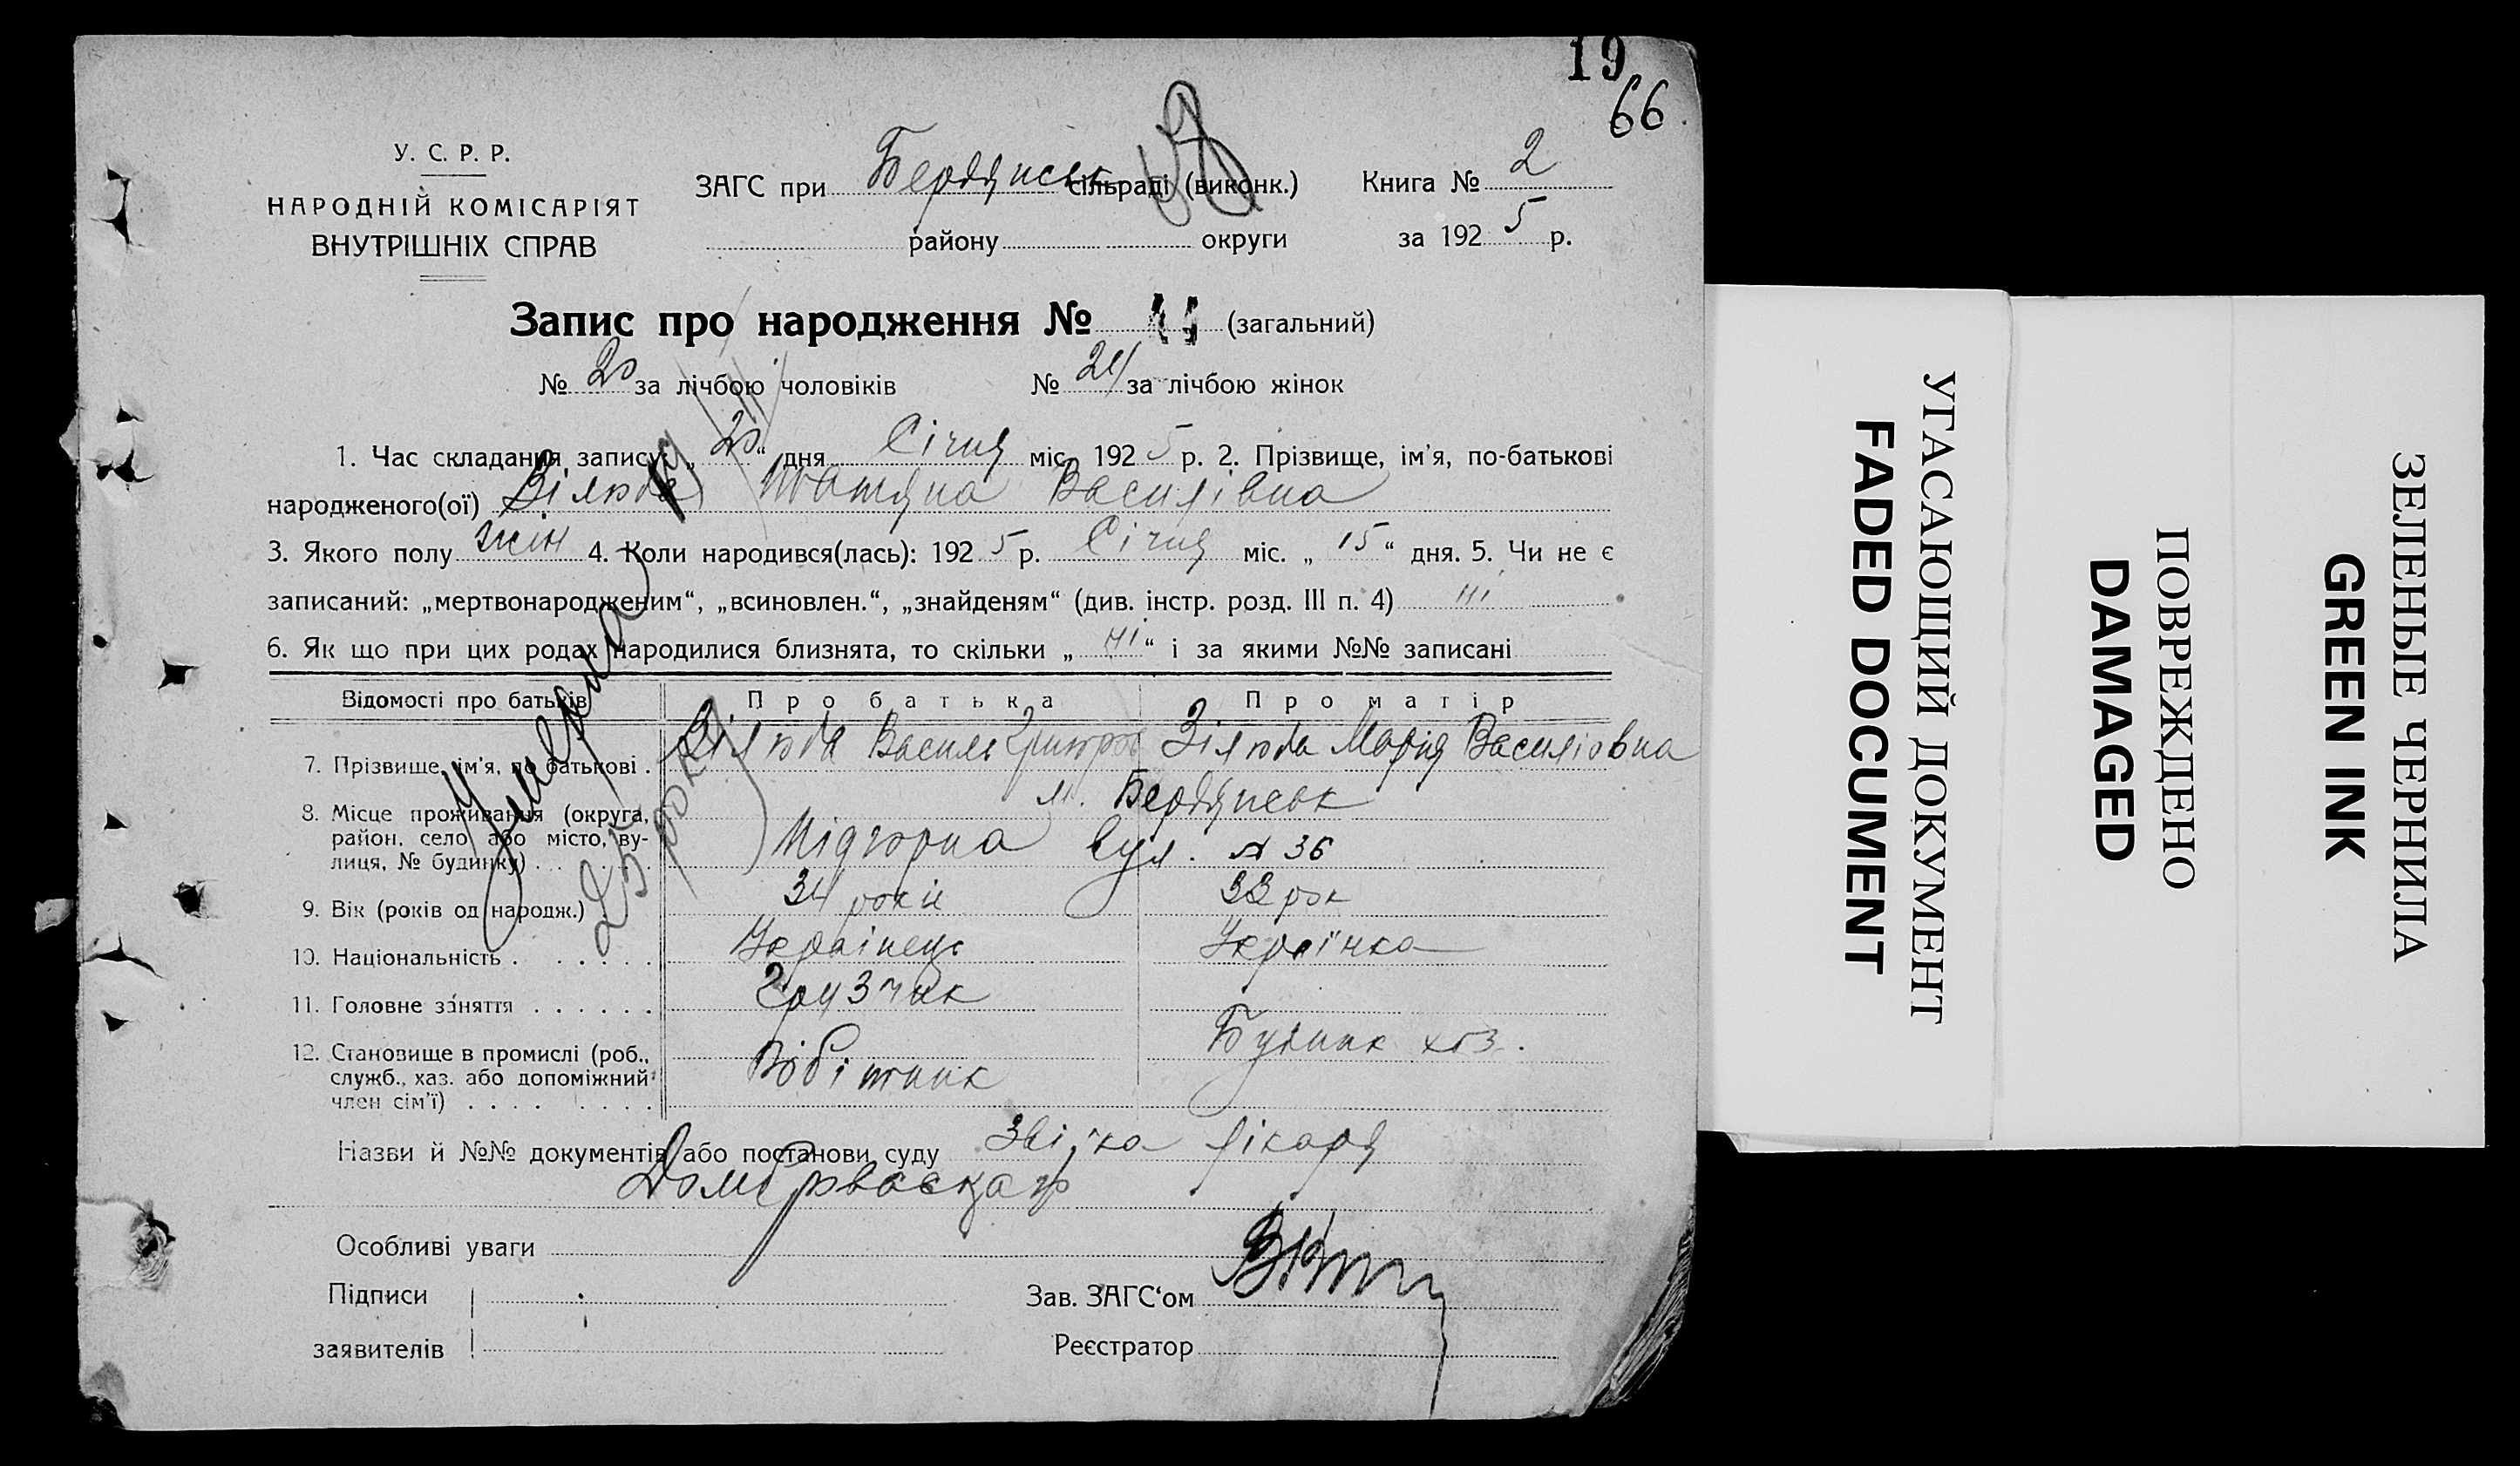 19
66
У. С. Р. Р.
НАРОДНІЙ КОМІСАРІЯТ
ВНУТРІШНІХ СПРАВ
ЗАГС при Бердянськ сільраді (виконк.) Книга № 2
району округи за 1925 р.
Запис про народження № (загальний)
№ 20 за лічбою чоловіків № 24 за лічбою жінок
1. Час складання запису: „20“ дня Січня міс. 1925 р. 2. Прізвище, ім'я, по-батькові
народженого(ої) Зілюда Татяна Василівна
3. Якого полу жін 4. Коли народився(лась): 1925 р. Січня міс. „15“ дня. 5. Чи не є
записаний: „мертвонародженим“, „всиновлен.“, „знайденям“ (див. інстр. розд. III п. 4)
6. Як що при цих родах народилися близнята, то скільки „ні“ і за якими №№ записані
Відомості про батьків Про батька Про матір
7. Прізвище, ім'я, по батькові . Зілюда Василь Зілюда Мария Василіовна
8. Місце проживання (округа, район, село або місто, вулиця, № будинку) . . . м. Бердянськ
Підгорна вул. № 36
9. Вік (років од народж.) 34 роки 33 рок
10. Національність . . . . . . Українець Українка
11. Головне заняття . . . . . . Грузчик
12. Становище в промислі (роб., служб., хаз. або допоміжний член сім'ї) . . . . . . . . Робітник
Умерла
25 року
Назви й №№ документів або постанови суду лікаря
Особливі уваги
Підписи
заявителів
Зав. ЗАГС‘ом
Реєстратор
УГАСАЮЩИЙ ДОКУМЕНТ
FADED DOCUMENT
ПОВРЕЖДЕНО
DAMAGED
ЗЕЛЕНЫЕ ЧЕРНИЛА
GREEN INK